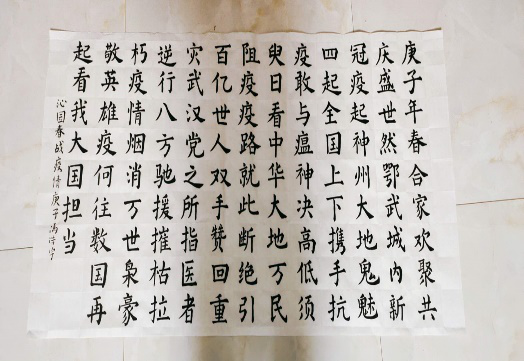 庚子年春合家欢聚共
庆盛世然鄂武城内新
冠疫起神州大地鬼魅
四起全国上下携手抗
疫敢与瘟神决高低须
臾日看中华大地万民
阻疫疫路就此断绝引
百亿世人双手赞回重
灾武汉党之所指医者
逆行八方驰援摧枯拉
朽疫情烟消万世枭豪
敬英雄疫何往数国再
起看我大国担当
沁园春战疫情庚子